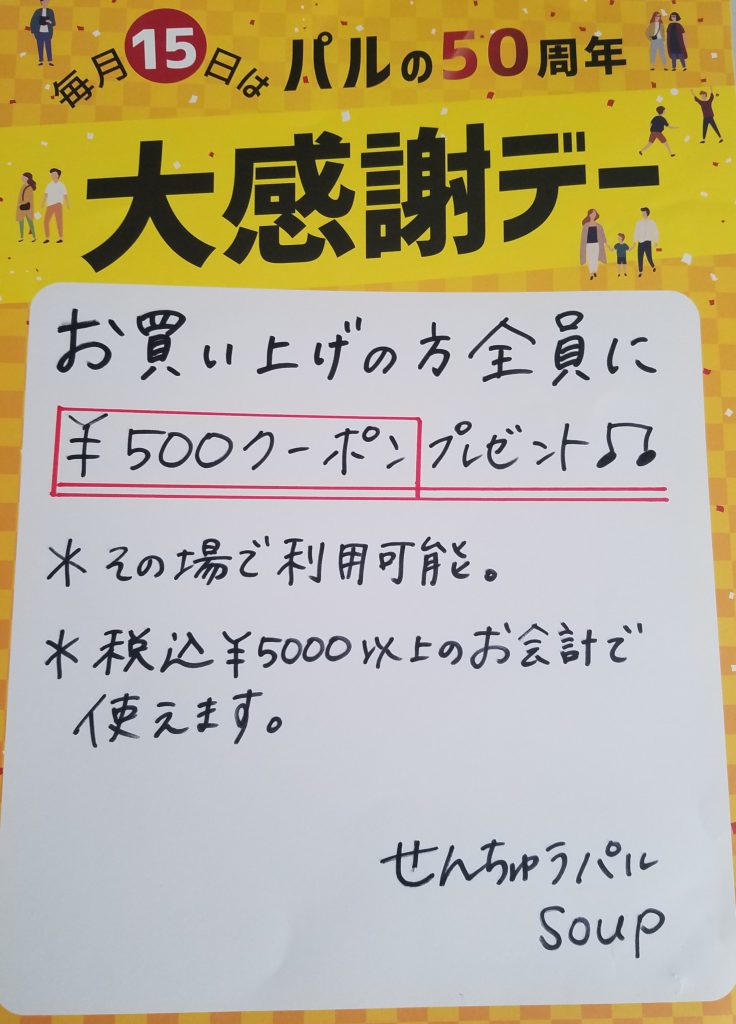 毎月15日は パルの50周年
大感謝デー
お買い上げの方全員に
¥500クーポンプレゼント♫
*その場で利用可能。
*税込¥5000以上のお会計で
使えます。
せんちゅうパル
soup